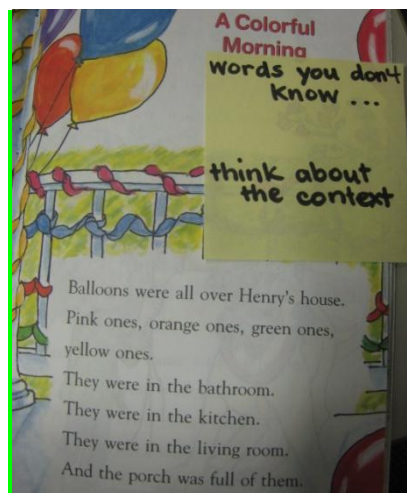 A Colorful
Morning
words you don't
know ...
think about
the context
Balloons were all over Henry's house.
Pink ones, orange ones, green ones,
yellow ones.
They were in the bathroom.
They were in the kitchen.
They were in the living room.
And the porch was full of them.